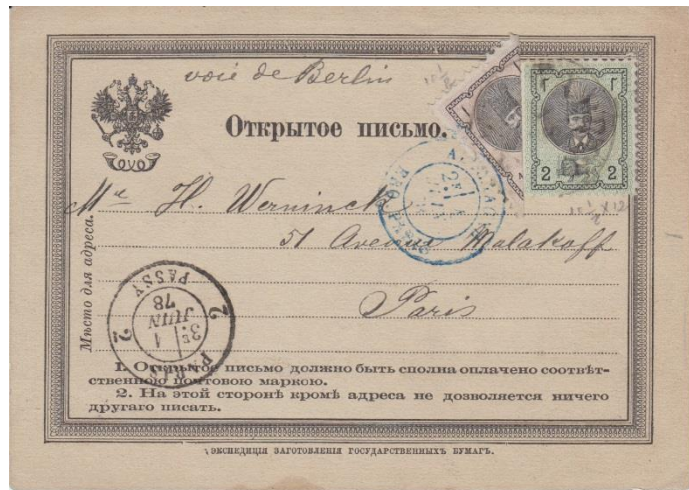 voie de Berlin
Открытое письмо.
٢ ٢
2 2
Mr H. Werninck
51 Avenue Malakoff
Paris
Мѣсто для адреса.
PARIS
2 2
3E
1
JUIN
78
PASSY
1. Открытое письмо должно быть сполна оплачено соотвѣт-
ственною почтовою маркою.
2. На этой сторонѣ кромѣ адреса не дозволяется ничего
другаго писать.
ЭКСПЕДИЦІЯ ЗАГОТОВЛЕНІЯ ГОСУДАРСТВЕННЫХЪ БУМАГЪ.